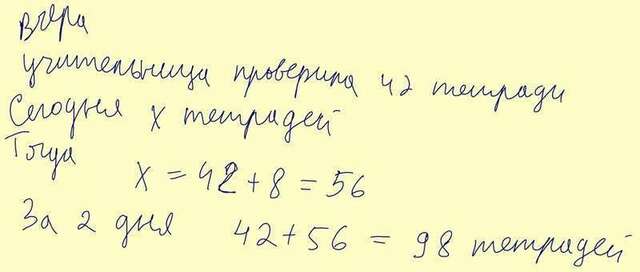 Вчера
учительница проверила 42 тетради
Сегодня x тетрадей
Тогда
x = 42 + 8 = 56
За 2 дня 42 + 56 = 98 тетрадей